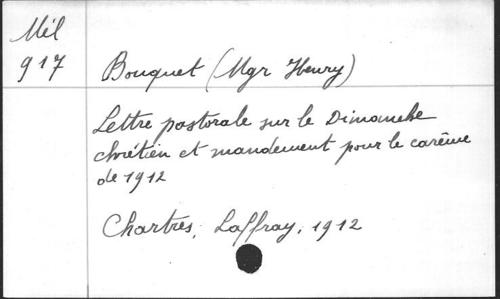 Mél
917
Bouquet (Mgr Henry)
Lettre pastorale sur le Dimanche
chrétien et mandement pour le carême
de 1912
Chartres, Laffray, 1912